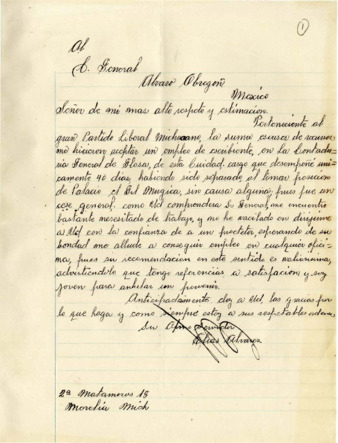 1
Al
C. General
Alvaro Obregón
Mexico
Señor de mi mas alto respeto y estimacion.
Perteneciente al
gran Partido Liberal Michoacano, la suma escasez de recursos
me hicieron aceptar un empleo de escribiente, en la Contadu
ria General de Glosa, de esta Ciudad, cargo que desempeñé uni-
camente 40 dias, habiendo sido separado al tomar posecion
de Palacio el Gral Mugica, sin causa alguna, pues fue un
cese general. como Ud comprendera Sr General, me encuentro
bastante necesitado de trabajo, y me he exitado en dirigirme
a Ud con la confianza de a un protector, esperando de su
bondad me allude a conseguir empleo en cualquier ofici-
na, pues su recomendacion en este sentido es valiosisima,
advirtiendole que tengo referencias a satisfaccion y soy
joven para anhelar un porvenir.
Anticipadamente doy a Ud, las gracias por
lo que haga y como siempre estoy a sus respetables ordenes,
Su Afmo Servidor
Elias Alvarez
2a Matamoros 15
Morelia Mich